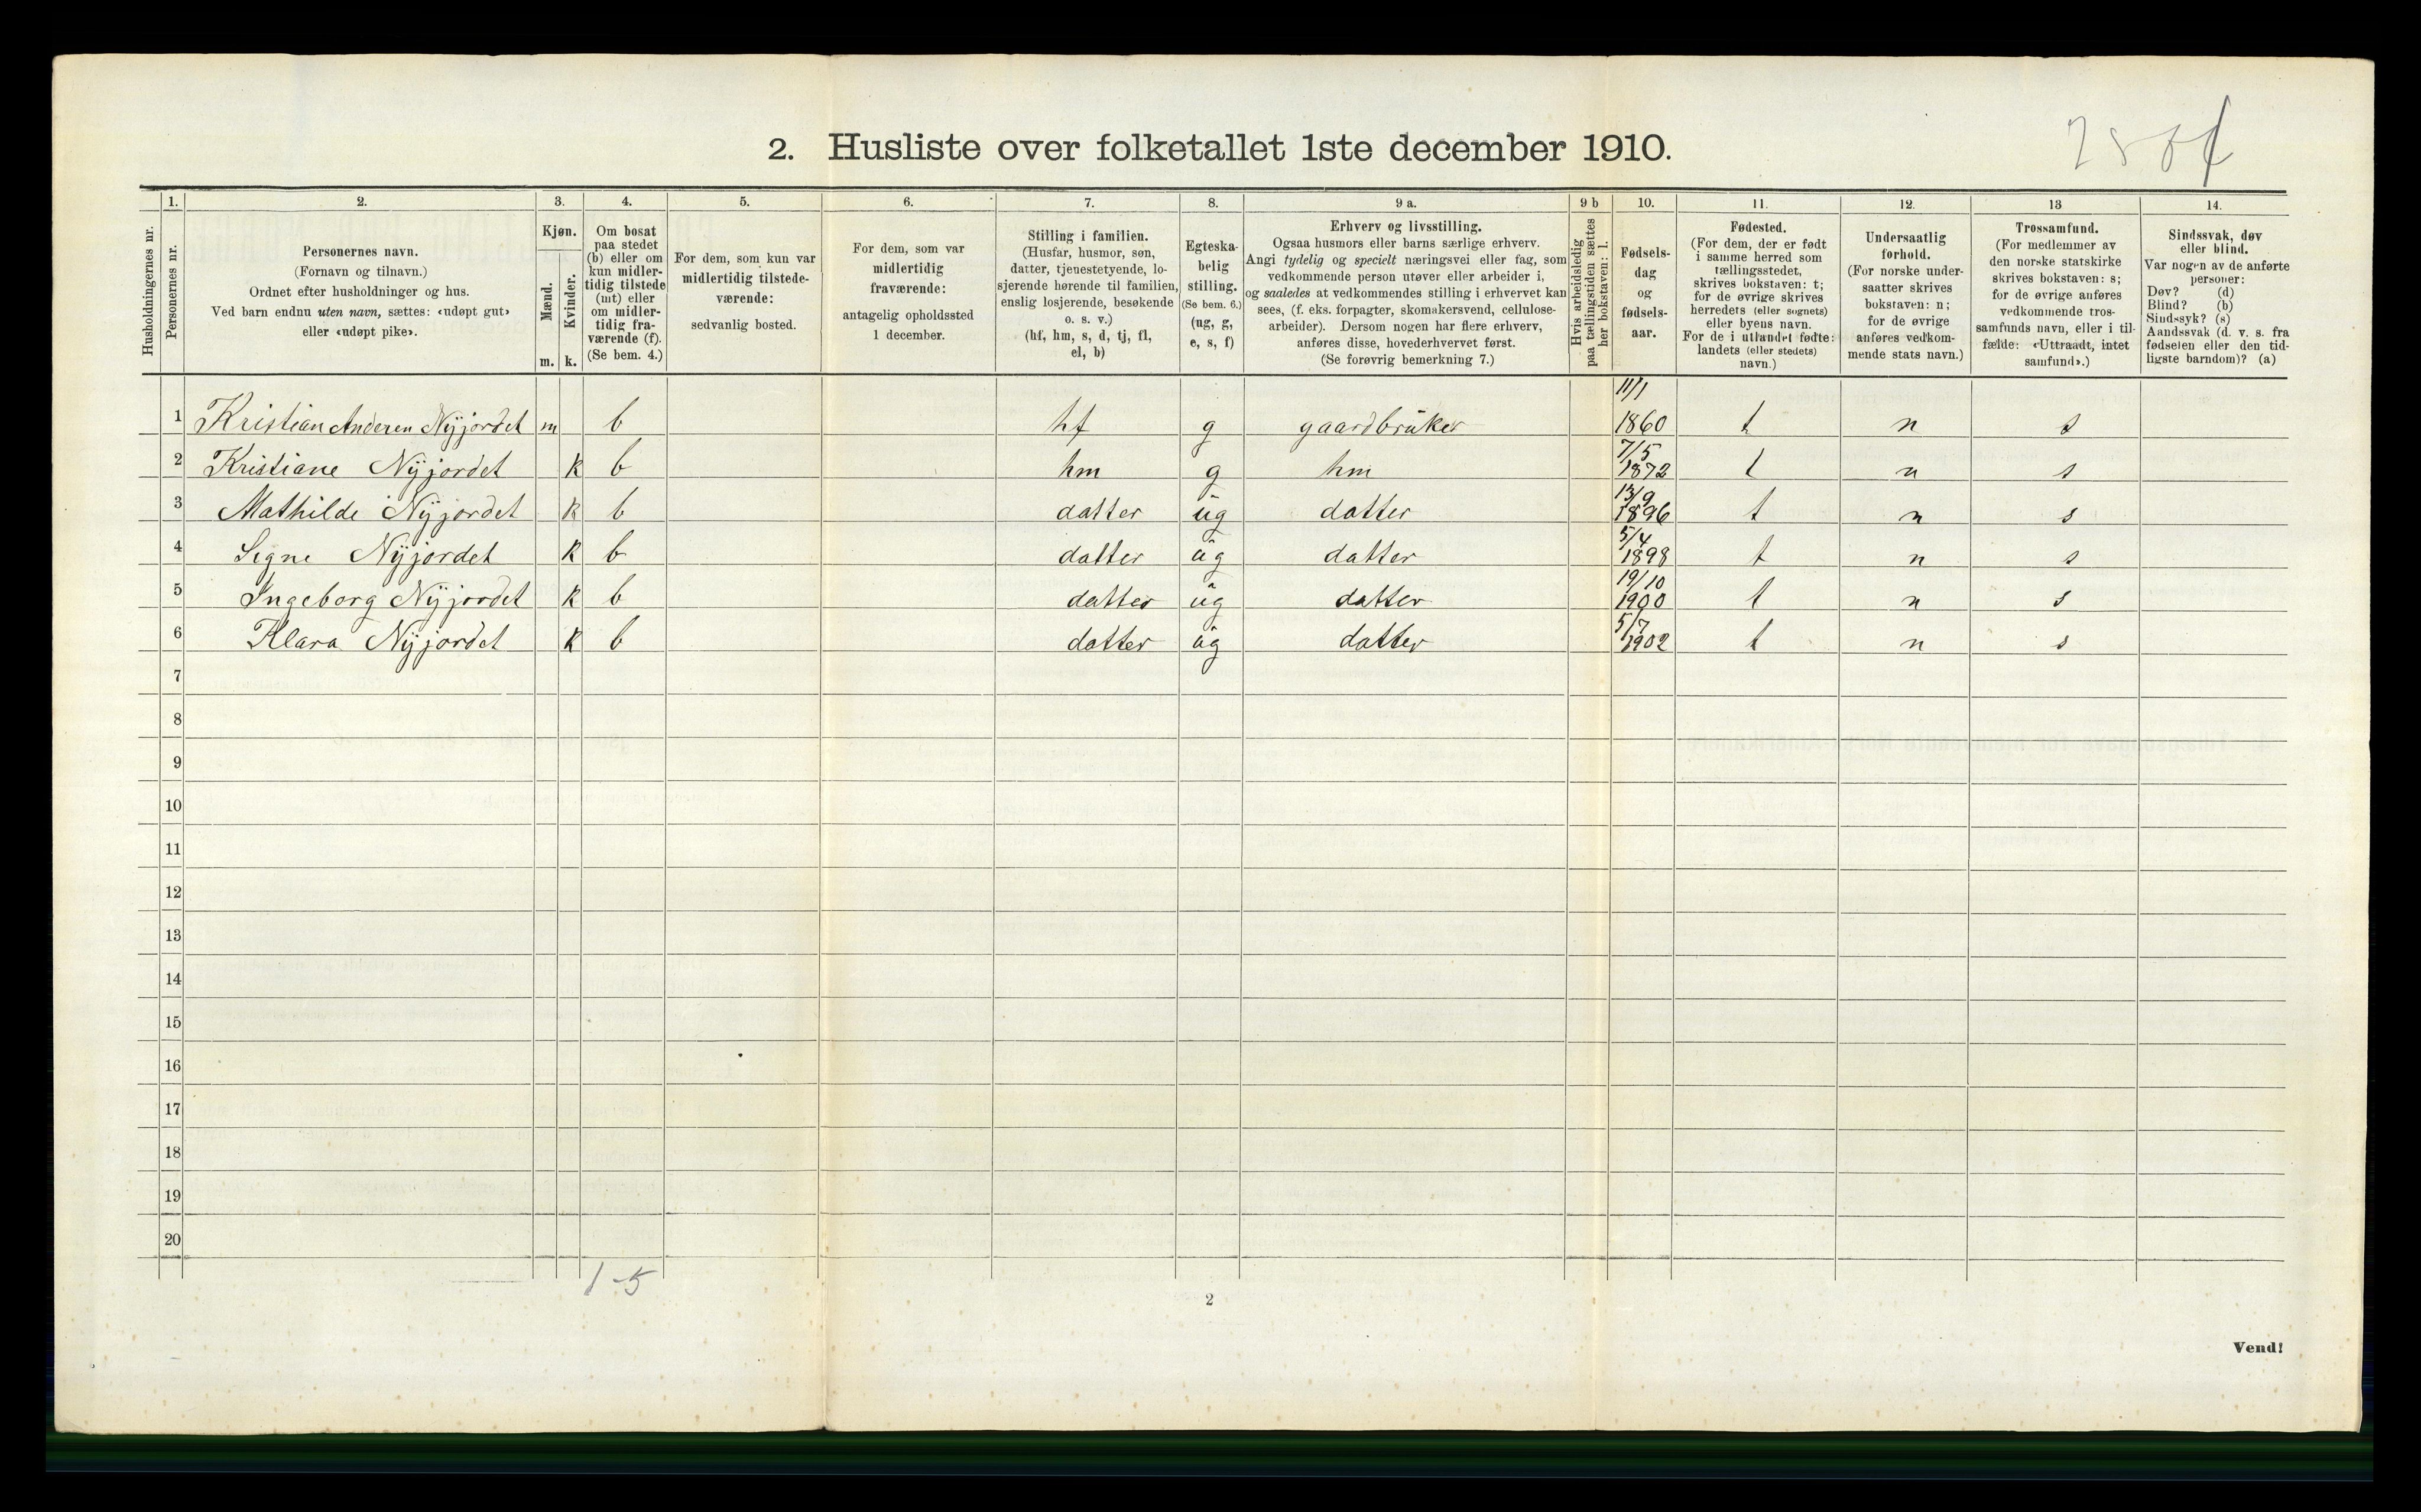 2. Husliste over folketallet 1ste december 1910.
Husholdningernes nr.
1. Personernes nr.
2. Personernes navn.
(Fornavn og tilnavn.)
Ordnet efter husholdninger og hus.
Ved barn endnu uten navn, sættes: «udøpt gut»
eller «udøpt pike».
3. Kjøn.
Mænd. m.
Kvinder. k.
4. Om bosat
paa stedet
(b) eller om
kun midler-
tidig tilstede
(mt) eller
om midler-
tidig fra-
værende (f).
(Se bem. 4.)
5. For dem, som kun var
midlertidig tilstede-
værende:
sedvanlig bosted.
6. For dem, som var
midlertidig
fraværende:
antagelig opholdssted
1 december.
7. Stilling i familien.
(Husfar, husmor, søn,
datter, tjenestetyende, lo-
sjerende hørende til familien,
enslig losjerende, besøkende
o. s. v.)
(hf, hm, s, d, tj, fl,
el, b)
8. Egteska-
belig
stilling.
(Se bem. 6.)
(ug, g,
e, s, f)
9 a. Erhverv og livsstilling.
Ogsaa husmors eller barns særlige erhverv.
Angi tydelig og specielt næringsvei eller fag, som
vedkommende person utøver eller arbeider i,
og saaledes at vedkommendes stilling i erhvervet kan
sees, (f. eks. forpagter, skomakersvend, cellulose-
arbeider). Dersom nogen har flere erhverv,
anføres disse, hovederhvervet først.
(Se forøvrig bemerkning 7.)
9 b Hvis arbeidsledig
paa tællingstiden sættes
her bokstaven: l.
10. Fødsels-
dag
og
fødsels-
aar.
11. Fødested.
(For dem, der er født
i samme herred som
tællingsstedet,
skrives bokstaven: t;
for de øvrige skrives
herredets (eller sognets)
eller byens navn.
For de i utlandet fødte:
landets (eller stedets)
navn.)
12. Undersaatlig
forhold.
(For norske under-
saatter skrives
bokstaven: n;
for de øvrige
anføres vedkom-
mende stats navn.)
13 Trossamfund.
(For medlemmer av
den norske statskirke
skrives bokstaven: s;
for de øvrige anføres
vedkommende tros-
samfunds navn, eller i til-
fælde: «Uttraadt, intet
samfund».)
14. Sindssvak, døv
eller blind.
Var nogen av de anførte
personer:
Døv? (d)
Blind? (b)
Sindssyk? (s)
Aandssvak (d. v. s. fra
fødselen eller den tid-
ligste barndom)? (a)
1 Kristian Anderen Nyjordet m b hf g gaardbruker 11/1 1860 t n s
2 Kristiane Nyjordet k b hm g hm 7/5 1872 t n s
3 Mathilde Nyjordet k b datter ug datter 13/9 1896 t n s
4 Signe Nyjordet k b datter ug datter 5/4 1898 t n s
5 Ingeborg Nyjordet k b datter ug datter 19/10 1900 t n s
6 Klara Nyjordet k b datter ug datter 5/7 1902 t n s
7
8
9
10
11
12
13
14
15
16
17
18
19
20
1-5
2
Vend!